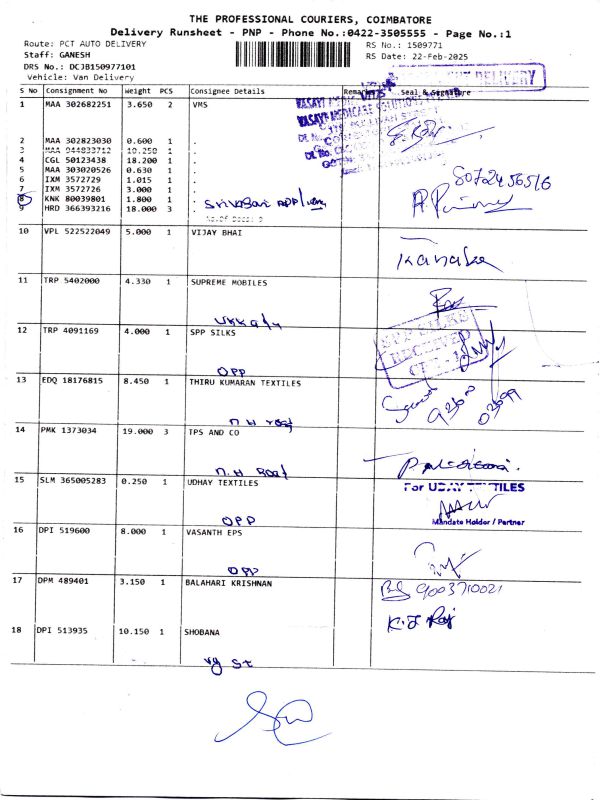 THE PROFESSIONAL COURIERS, COIMBATORE
Delivery Runsheet - PNP - Phone No.:0422-3505555 - Page No.:1
Route: PCT AUTO DELIVERY
RS No.: 1509771
Staff: GANESH
RS Date: 22-Feb-2025
DRS No.: DCJB150977101
Vehicle: Van Delivery
DELIVERY
S No Consignment No Weight PCS Consignee Details Remarks Seal & Signature
1 MAA 302682251 3.650 2 VMS
2 MAA 302823030 0.600 1 .
3 MAA 10.250 1 .
4 CGL 50123438 18.200 1 .
5 MAA 303020526 0.630 1 .
6 IXM 3572729 1.015 1 .
7 IXM 3572726 3.000 1 .
8 KNK 80039801 1.800 1 .
9 HRD 366393216 18.000 3 .
No.Of Docs: 9
8072456516
10 VPL 522522049 5.000 1 VIJAY BHAI
Kanaka
11 TRP 5402000 4.330 1 SUPREME MOBILES
12 TRP 4091169 4.000 1 SPP SILKS
SPP SILKS
RECEIVED
OPP
13 EDQ 18176815 8.450 1 THIRU KUMARAN TEXTILES
N H Road
14 PMK 1373034 19.000 3 TPS AND CO
N.H Road
15 SLM 365005283 0.250 1 UDHAY TEXTILES
For UDAY TEXTILES
Mandate Holder / Partner
OPP
16 DPI 519600 8.000 1 VASANTH EPS
OPP
17 DPM 489401 3.150 1 BALAHARI KRISHNAN
9003710021
K.J Raj
18 DPI 513935 10.150 1 SHOBANA
vg St